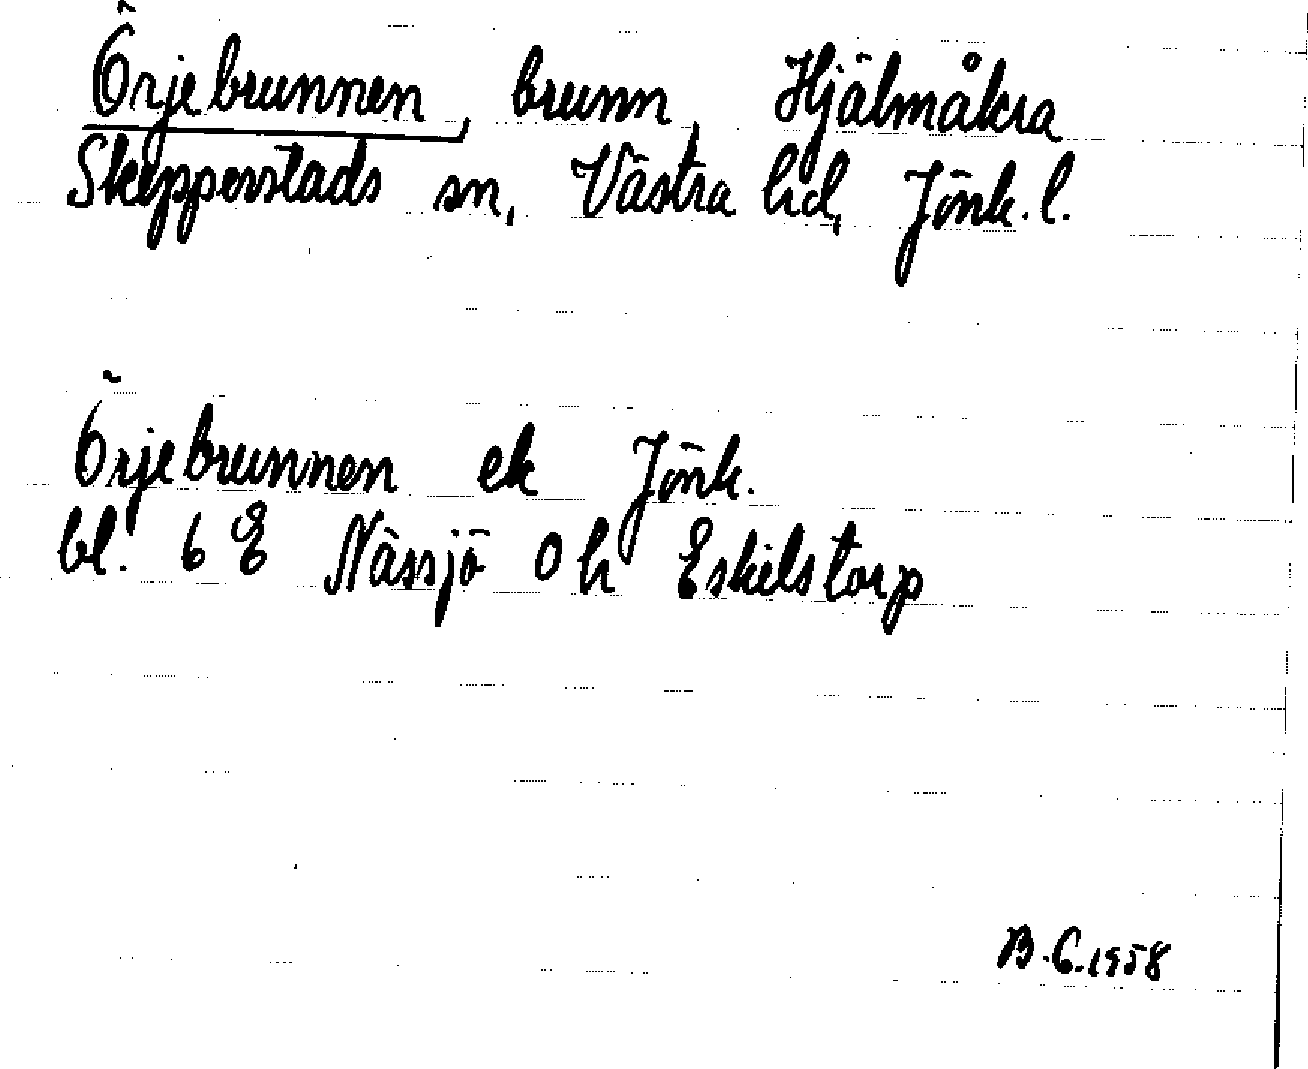 Örjebrunnen, brunn, Hjälmåkra
Skepperstads sn, Västra hd, Jönk. l.
Örjebrunnen ek Jönk.
bl. 6 E Nässjö Oh Eskilstorp
B.G. 1958